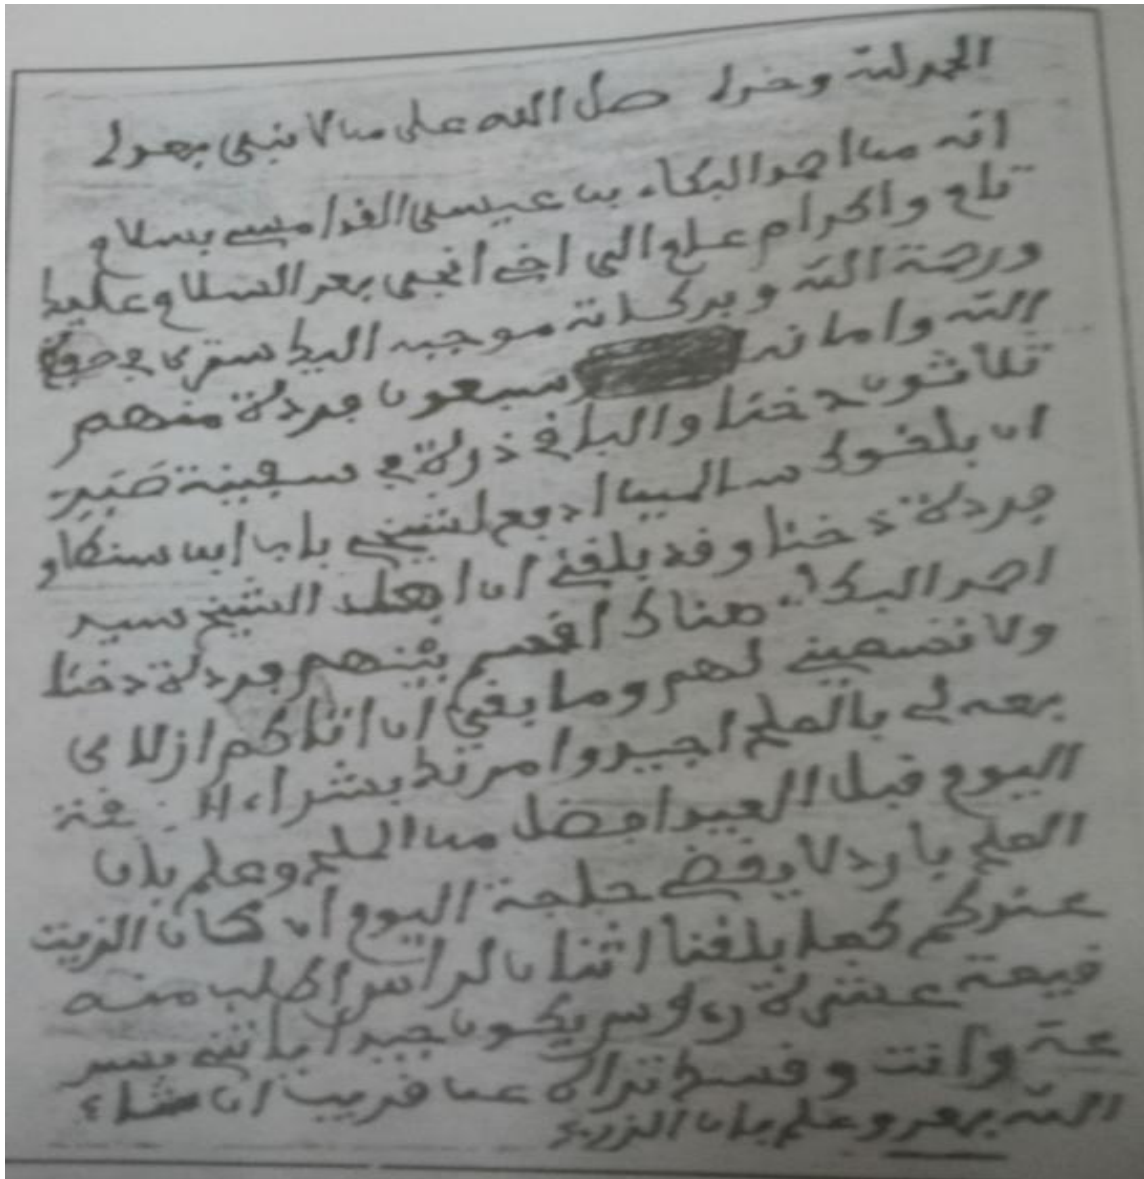 الحمد لله وحده صل الله على من لا نبي بعده
انه من احمد البكاء بن عيسى الغدامسي بسلام
تام واكرام عام الى اخي انجي بعد السلام عليك
ورحمة الله وبركاته موجبه اليك ستري في
الله وامانه سبعون فردة منهم
ثلاثون دخنا والباقي ذرة في سفينة
ان بلغوك سالمين ادفع لشيخ باب ابن سنكاو
فردة دخنا وقد بلغني ان اهل الشيخ سيد
احمد البكاء هناك اقسم بينهم فردة دخنا
ولا لهم وما بقي ان
بعه لي بالملح اجيد وامرتك بشراء
اليوم قبل العيد افضل من الملح وعلم بان
الملح بارد لا يقضي حاجة اليوم ان كان الزيت
عندكم كما بلغنا اثنان لراس اطلب منه
قيمة عشرة رءوس يكون جيدا يسر
وانت وقسط تراه عن قريب ان شاء
الله بعد وعلم بان